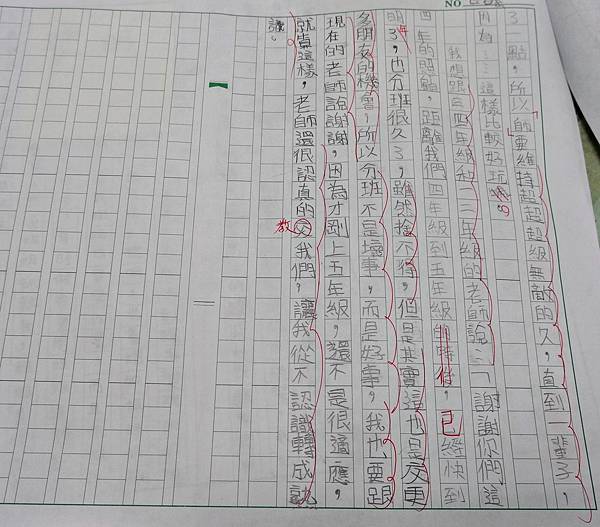 NO
了一點，所以「師要維持超超超級無敵的久，直到一輩子，
因為……這樣比較好玩。
我想跟三四年級和一二年級的老師說：「謝謝你們這
四年的照顧，距離我們四年級到五年級的時候，已經快到
明年了，也分班很久了，雖然捨不得，但是其實這也是交更
多朋友的機會，所以分班不是壞事，而是好事，我也要跟
現在的老師說謝謝，因為才剛上五年級，還不是很適應，
就算這樣，老師還很認真的教我們，讓我從不認識轉成認
識。